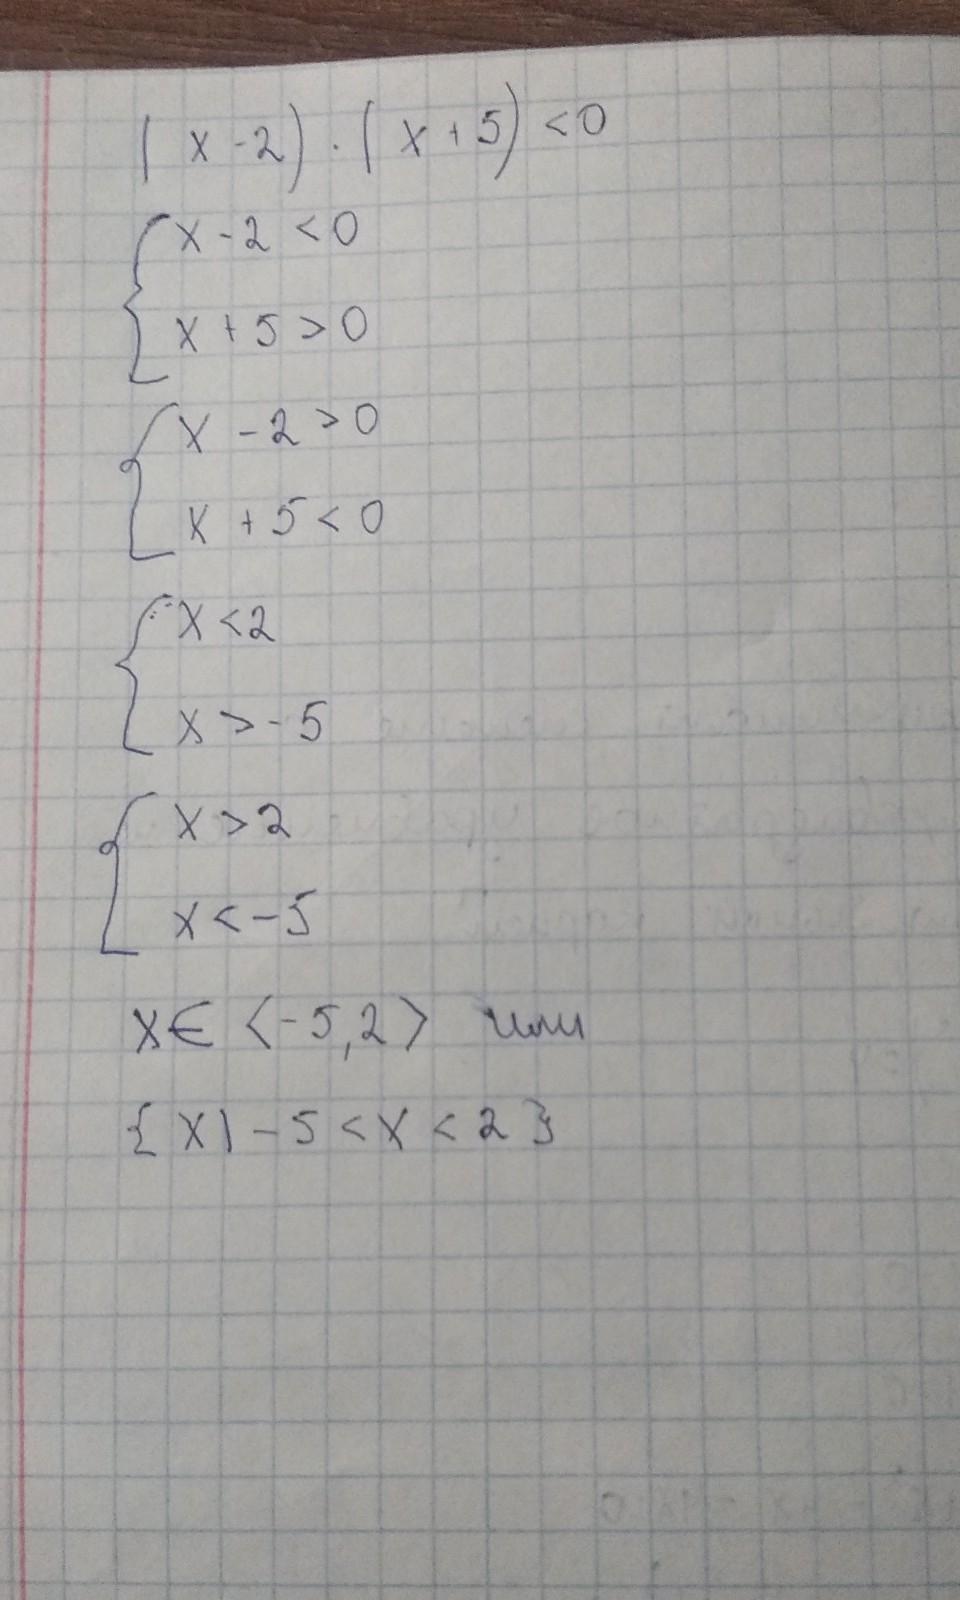 (x-2)·(x+5)<0
{x-2<0
x+5>0
{x-2>0
x+5<0
{x<2
x>-5
{x>2
x<-5
x∈⟨-5,2⟩ или
{x|-5<x<2}